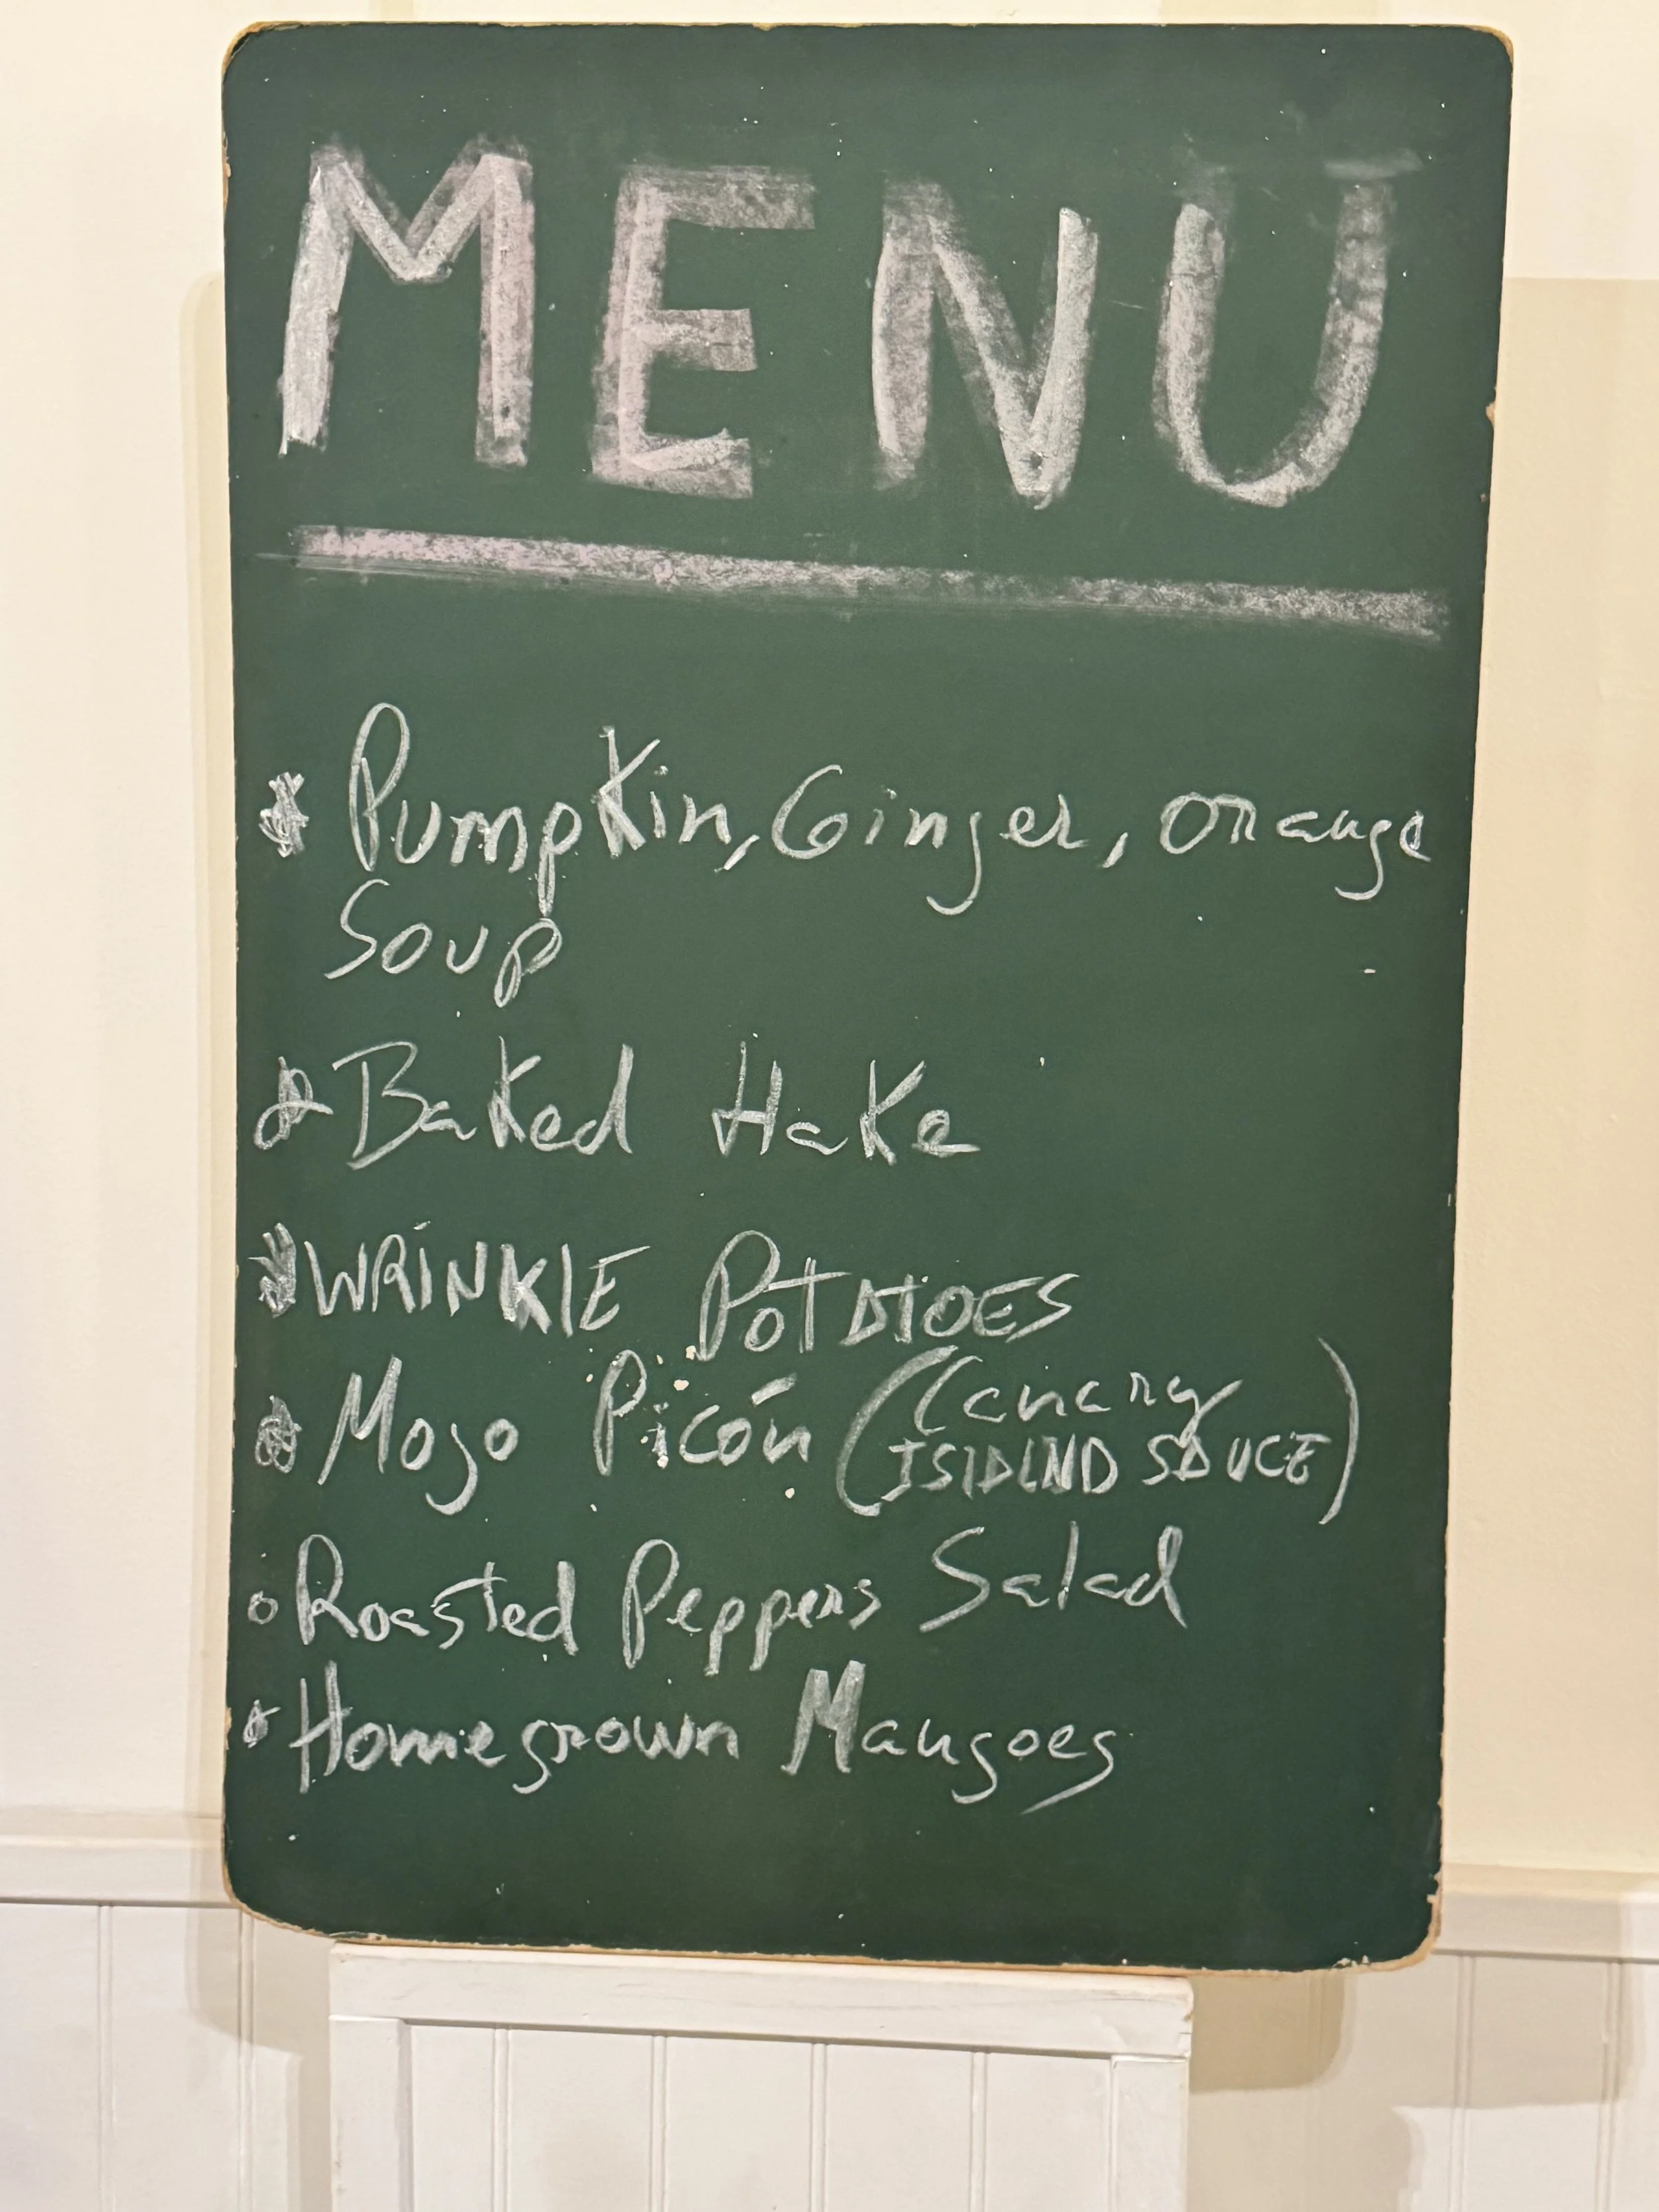 MENU
* Pumpkin, Ginger, orange
Soup
* Baked Hake
* WRINKlE POTATOES
* Mojo Picón (Canary
ISlAND SAUCE)
o Roasted Peppers Salad
* Homegrown Mangoes